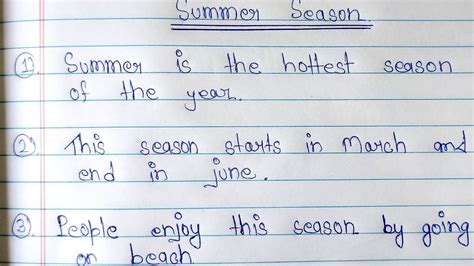 Summer Season
1) Summer is the hottest season
of the year.
2) This season starts in March and
end in june.
3) People enjoy this season by going
on beach